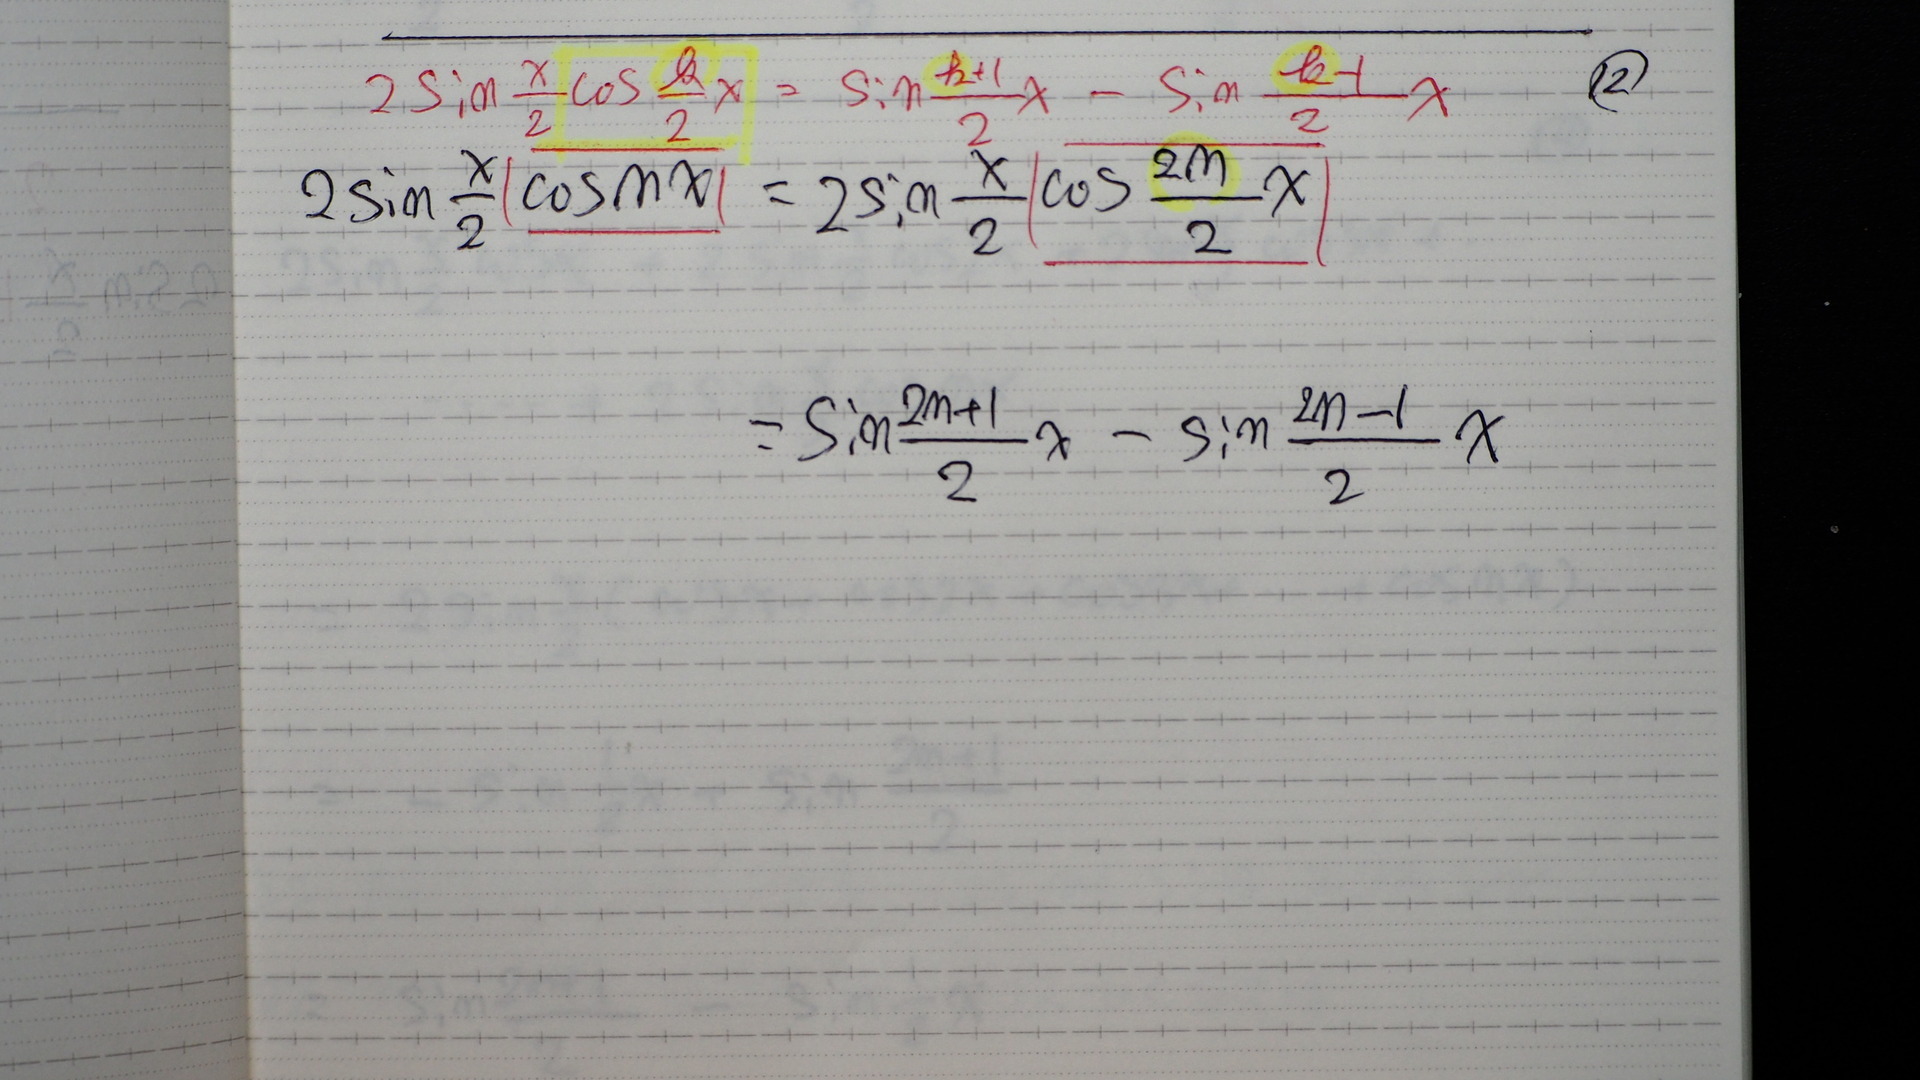 2 sin x/2 cos k/2 x = sin k+1/2 x - sin k-1/2 x (2)
2 sin x/2 cos nx = 2 sin x/2 cos 2n/2 x
= sin 2n+1/2 x - sin 2n-1/2 x